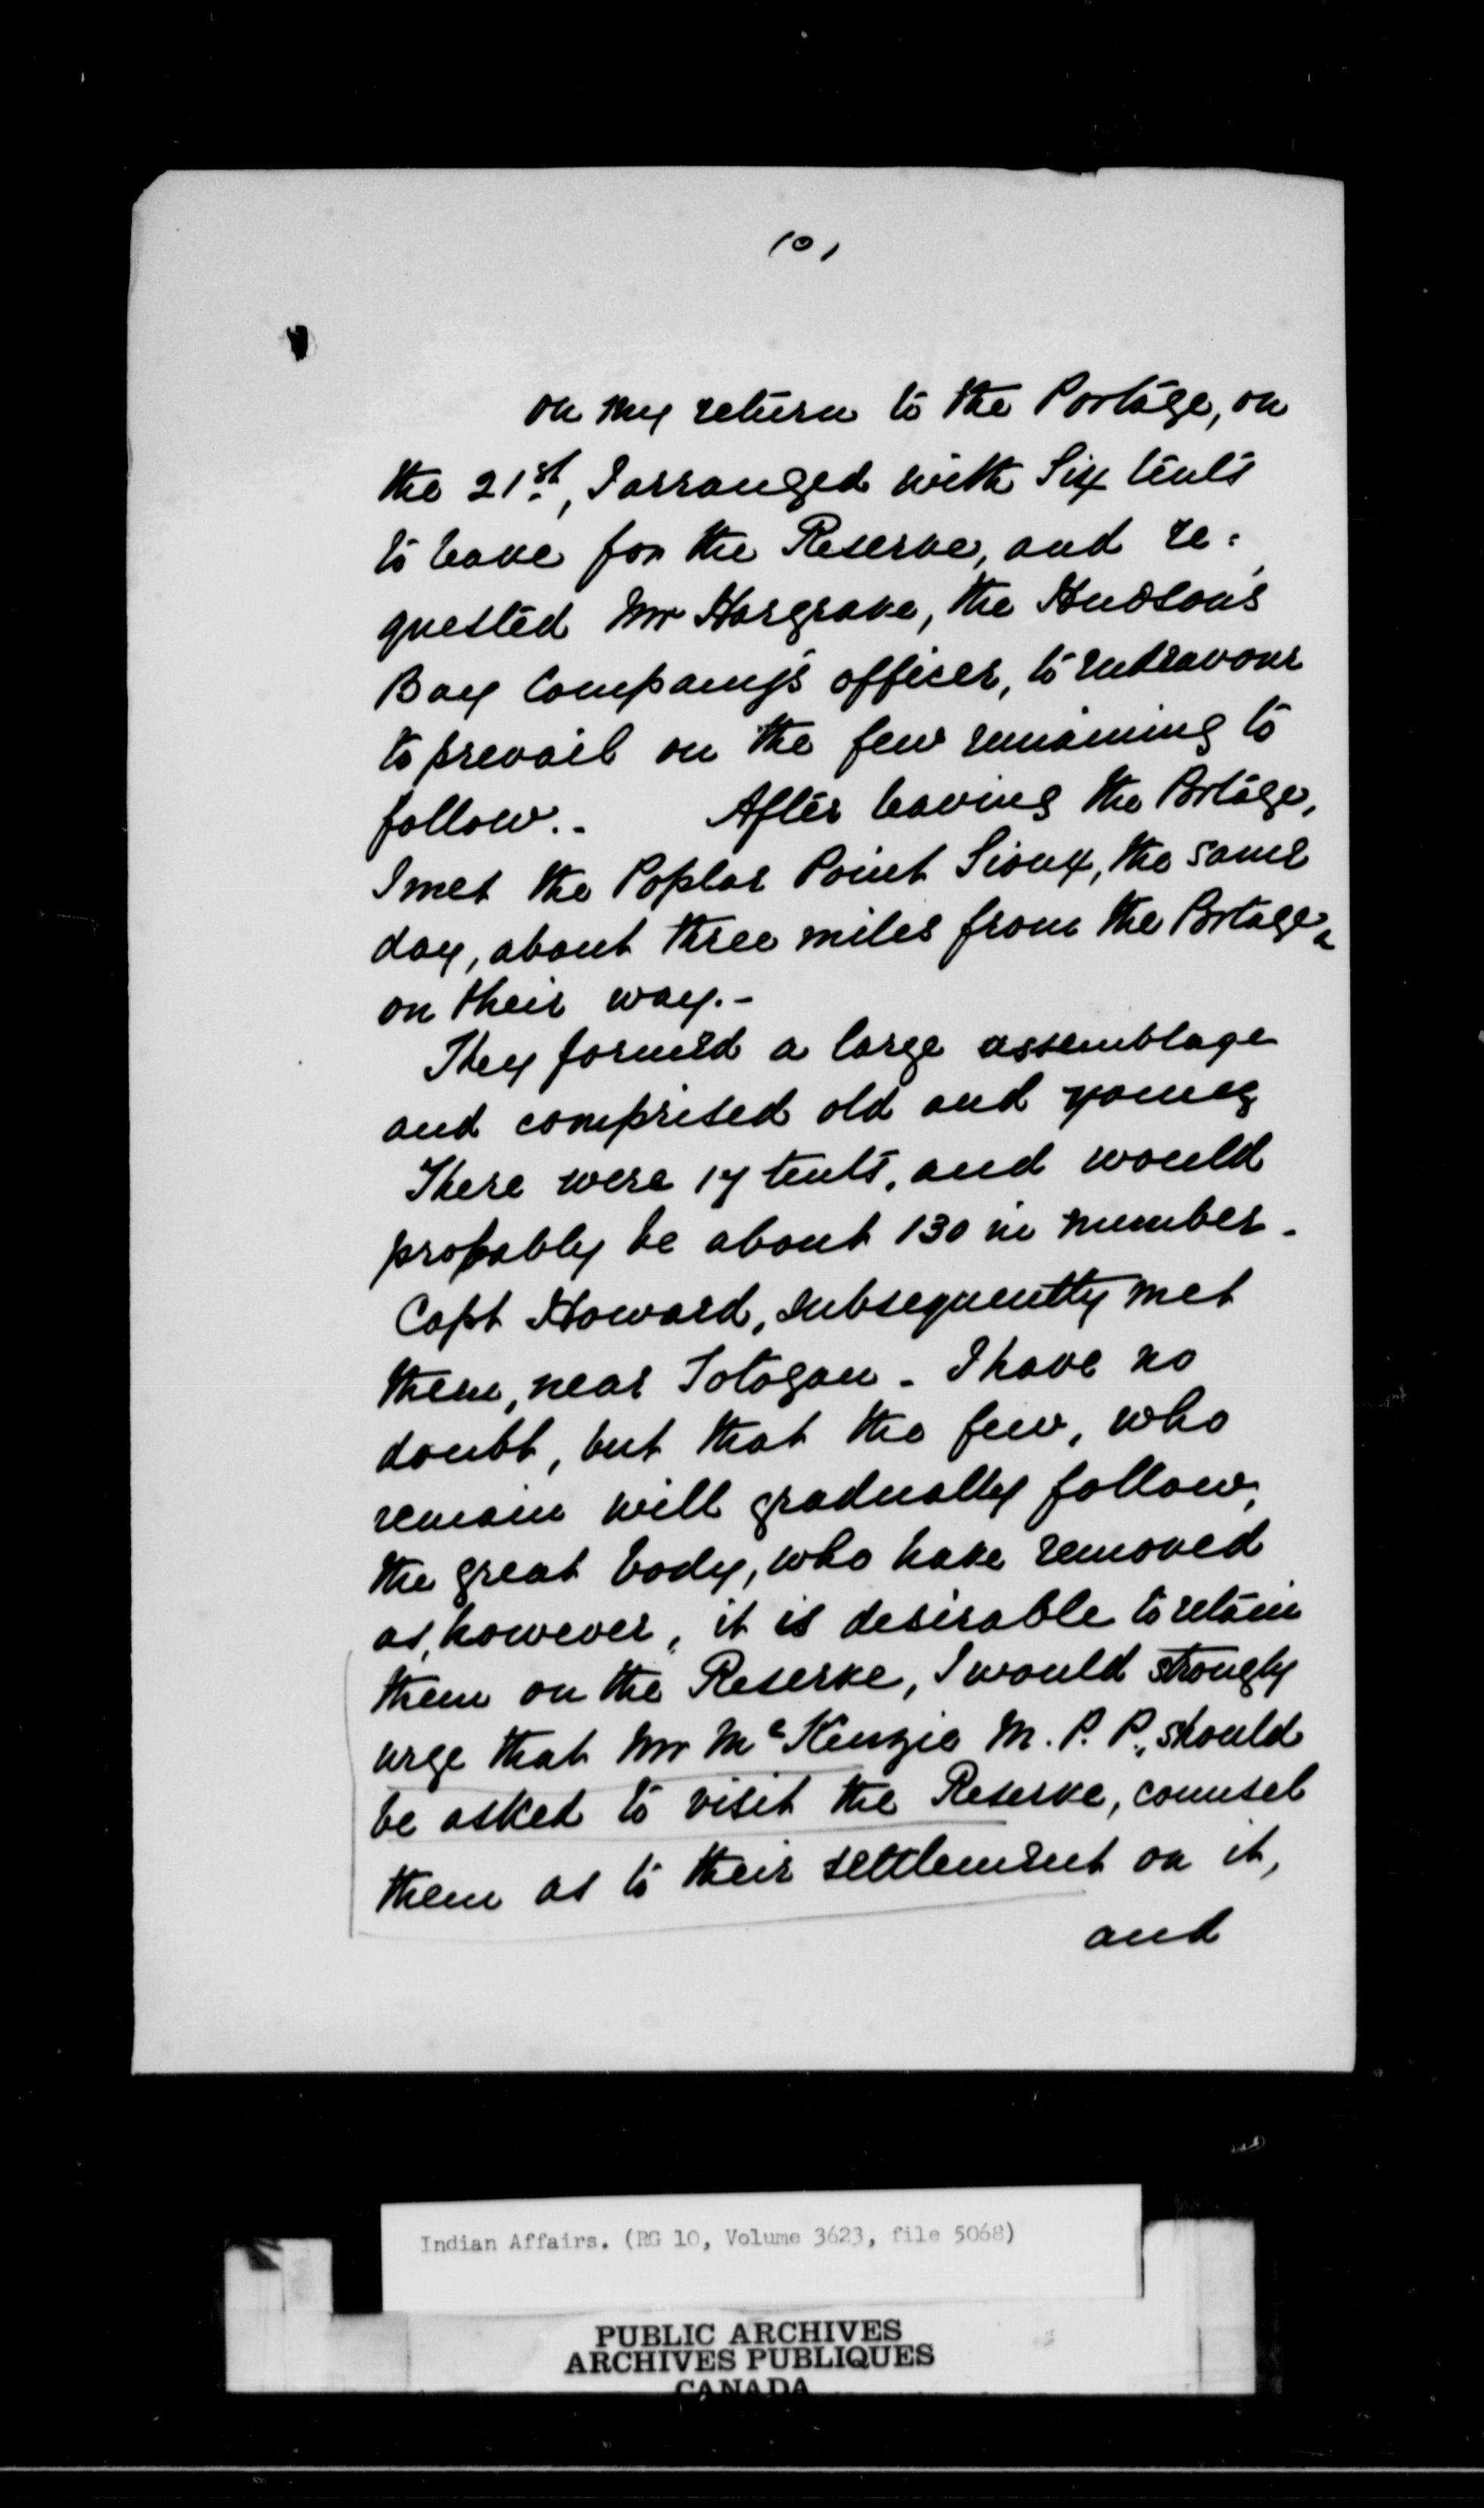 10,
On my return to the Portage, on
the 21st, I arranged with Six tents
to leave for the Reserve, and re=
quested Mr Hargrave, the Hudson's
Bay Company's officer, to endeavour
to prevail on the few remaining to
follow.- After leaving the Portage,
I met the Poplar Point Sioux, the same
day, about three miles from the Portage,
on their way.-
They formed a large assemblage
and comprised old and young
There were 17 tents, and would
probably be about 130 in number.
Capt Howard, subsequently met
them, near Totogan - I have no
doubt, but that the few, who
remain will gradually follow,
the great body, who have removed
as, however, it is desirable to retain
them on the Reserve, I would strongly
urge that Mr McKenzie M. P. P., should
be asked to visit the Reserve, counsel
them as to their settlement on it,
and
Indian Affairs. (RG 10, Volume 3623, file 5068)
PUBLIC ARCHIVES
ARCHIVES PUBLIQUES
CANADA